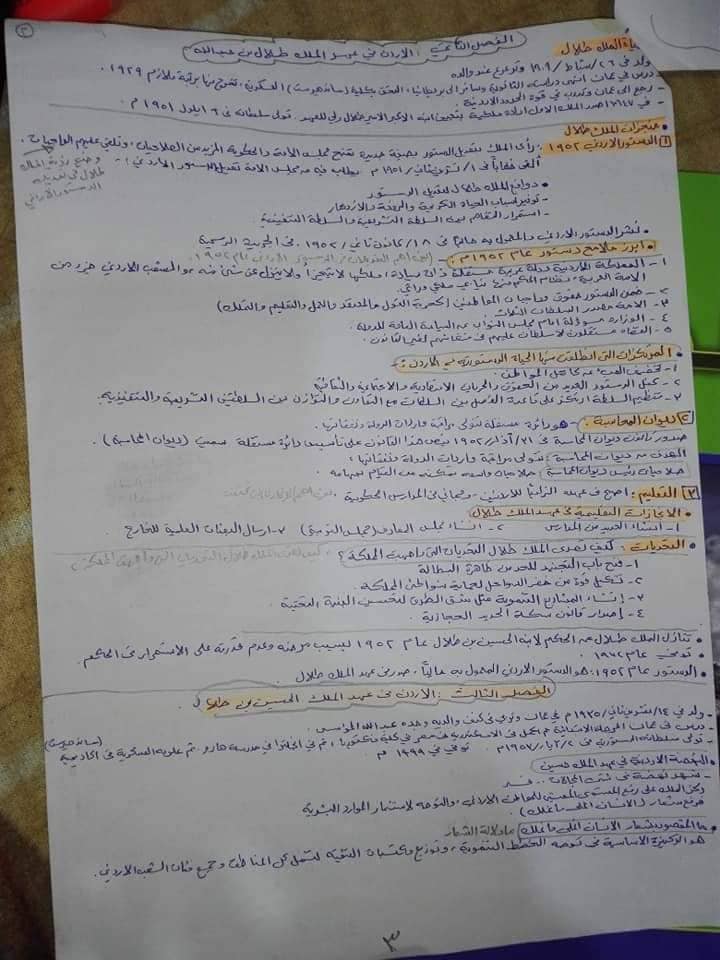 الفصل الثاني : الأردن في عهد الملك طلال بن عبدالله
حياة الملك طلال
ولد في ٢٦/ شباط/ ١٩٠٩ وترعرع عند والده
درس في عمان انهى دراسته الثانوية وسافر الى بريطانيا، التحق بكلية (ساندهيرست) العسكرية، تخرج منها برتبة ملازم ١٩٢٩
- رجع الى عمان وتدرب في قوة الحدود الاردنية
- في ١٩٤٧ صدر الملك الاول ارادة ملكية بتعيين ابنه الاكبر الامير طلال ولي للعهد. تولى سلطان في ٦ ايلول ١٩٥١ م
منجزات الملك طلال
١ الدستور الاردني ١٩٥٢ : رأى الملك بتعديل الدستور بصيغة جديدة تمنح مجلس الامة والحكومة المزيد من الصلاحيات، وتلقي عليهم الواجبات.
ألقى خطاباً في ١/ تشرين ثاني/ ١٩٥١ م يطلب فيه من مجلس الامة تعديل الدستور الاردني :-
وضح رؤية الملك
طلال في تعديل
الدستور الاردني
• دوافع الملك طلال لتعديل الدستور
- توفير اسباب الحياة الكريمة والرفعة والازدهار
- استمرار التفاهم بين السلطة التشريعية والسلطة التنفيذية
• نشر الدستور الاردني والمعمول به حالياً في ١٨/ كانون ثاني/ ١٩٥٢. في الجريدة الرسمية
• ابرز ملامح دستور عام ١٩٥٢ م :
١- المملكة الاردنية دولة عربية مستقلة ذات سيادة، ملكها لا يتجزأ ولا ينزل عن شئ منه والشعب الاردني جزء من
الامة العربية، نظام الحكم فيها نيابي ملكي وراثي.
٢- ضمن الدستور حقوق وواجبات المواطنين (كحرية القول والمعتقد والعمل والتعليم والتملك)
٣- الامة مصدر السلطات الثلاث
٤- الوزارة مسؤولة امام مجلس النواب عن السياسة العامة للدولة
٥- القضاة مستقلون لا سلطان عليهم في قضائهم لغير القانون.
• المرتكزات التي انطلقت منها الحياة الدستورية في الاردن :-
١- تخفيف العبء عن كاهل المواطن.
٢- كفل الدستور العديد من الحقوق والحريات الاقتصادية والاجتماعية والثقافية
٣- تنظيم السلطة ارتكز على قاعدة الفصل بين السلطات مع التعاون والتوازن بين السلطتين التشريعية والتنفيذية.
٢ ديوان المحاسبة :- هو دائرة مستقلة تتولى مراقبة واردات الدولة ونفقاتها
صدور قانون ديوان المحاسبة في ٣١/ آذار/ ١٩٥٢ ينص هذا القانون على تأسيس دائرة مستقلة تسمى (ديوان المحاسبة)
الهدف من ديوان المحاسبة : تتولى مراقبة واردات الدولة ونفقاتها
صلاحيات رئيس ديوان المحاسبة : صلاحيات واسعة تمكنه من القيام بمهامه
٣ التعليم : اصبح في عهده الزامياً للاردنيين، ومجاني في المدارس الحكومية
الانجازات التعليمية في عهد الملك طلال
١- انشاء العديد من المدارس ٢- انشاء مجلس المعارف (مجلس التربية) ٣- ارسال البعثات العلمية للخارج
• التحديات : كيف تصدى الملك طلال التحديات التي واجهت المملكة؟
١- فتح باب التجنيد للحد من ظاهرة البطالة
٢- تشكيل قوة من خفر السواحل لحماية شواطئ المملكة
٣- إنشاء المشاريع التنموية مثل شق الطرق لتحسين البنية التحتية
٤- إصدار قانون سكة الحديد الحجازية
• تنازل الملك طلال عن الحكم لابنه الحسين بن طلال عام ١٩٥٢ لسبب مرضه وعدم قدرته على الاستمرار في الحكم.
• توفي عام ١٩٧٢
• الدستور عام ١٩٥٢: هو الدستور الاردني المعمول به حالياً، صدر في عهد الملك طلال
الفصل الثالث : الأردن في عهد الملك الحسين بن طلال
- ولد في ١٤/ تشرين ثاني/ ١٩٣٥ م في عمان وتربى في كنف والديه وجده عبدالله المؤسس.
- درس في عمان المرحلة الابتدائية ثم اكمل في الاسكندرية في مصر في كلية فكتوريا، ثم في انجلترا في مدرسة هارو، ثم علومه العسكرية في اكاديمية (ساندهيرست)
- تولى سلطاته الدستورية في ٢/ ايار/ ١٩٥٣ م. توفي في ١٩٩٩ م
• النهضة الاردنية في عهد الملك حسين
- شهد نهضة في شتى المجالات
ركز الملك على رفع المستوى المعيشي للمواطن الاردني، والتوجه لاستثمار الموارد البشرية
فرفع شعار (الانسان اغلى ما نملك).
ما المقصود بشعار الانسان اغلى ما نملك / ما دلالة الشعار
هو الركيزة الاساسية في توجه الخطط التنموية، وتوزيع مكتسبات التنمية لتشمل كل المناطق وجميع فئات الشعب الاردني.
٣